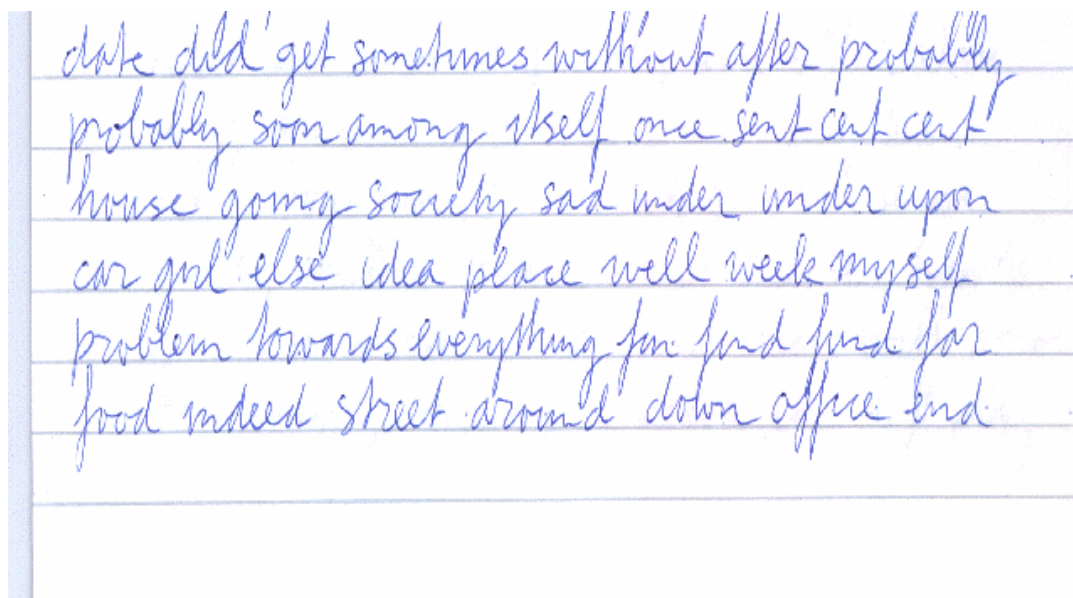 date did get sometimes without after probably
probably soon among itself once sent cent cent
house going society sad under under upon
car girl else idea place well week myself
problem towards everything fun fund fund far
food indeed street around down office end